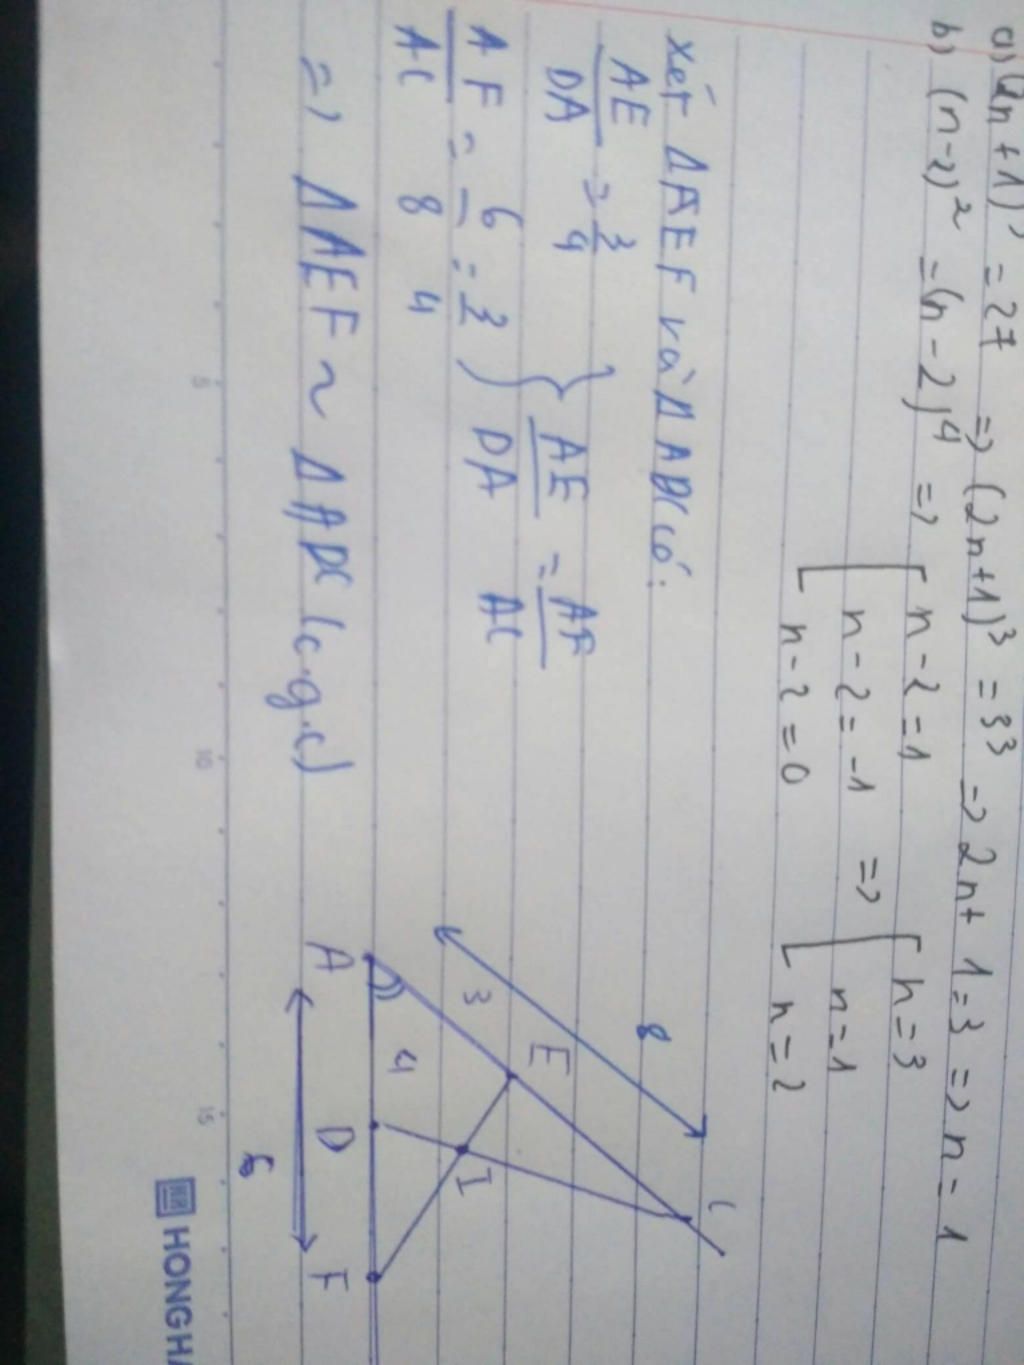 a) (2n+1)³ = 27 => (2n+1)³ = 33 => 2n+1=3 => n=1
b) (n-2)² = (n-2)4 => [ n-2=1 => [ n=3
n-2=-1 n=1
n-2=0 n=2
Xét ΔAEF và ΔADC có:
AE/DA = 3/4
AF/AC = 6/8 = 3/4 } AE/DA = AF/AC
=> ΔAEF ~ ΔADC (c.g.c)
8
C
3
E
I
4
A
D
F
6
5
10
15
HONGHA